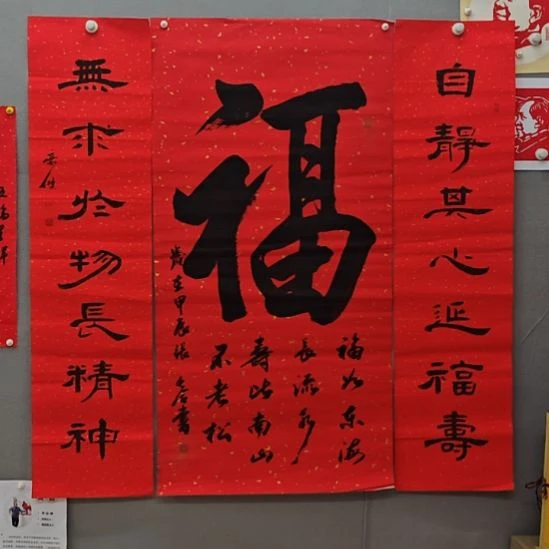 自靜其心延福壽
福
福如东海
長流水
壽比南山
不老松
歲在甲辰張
書
無求於物長精神